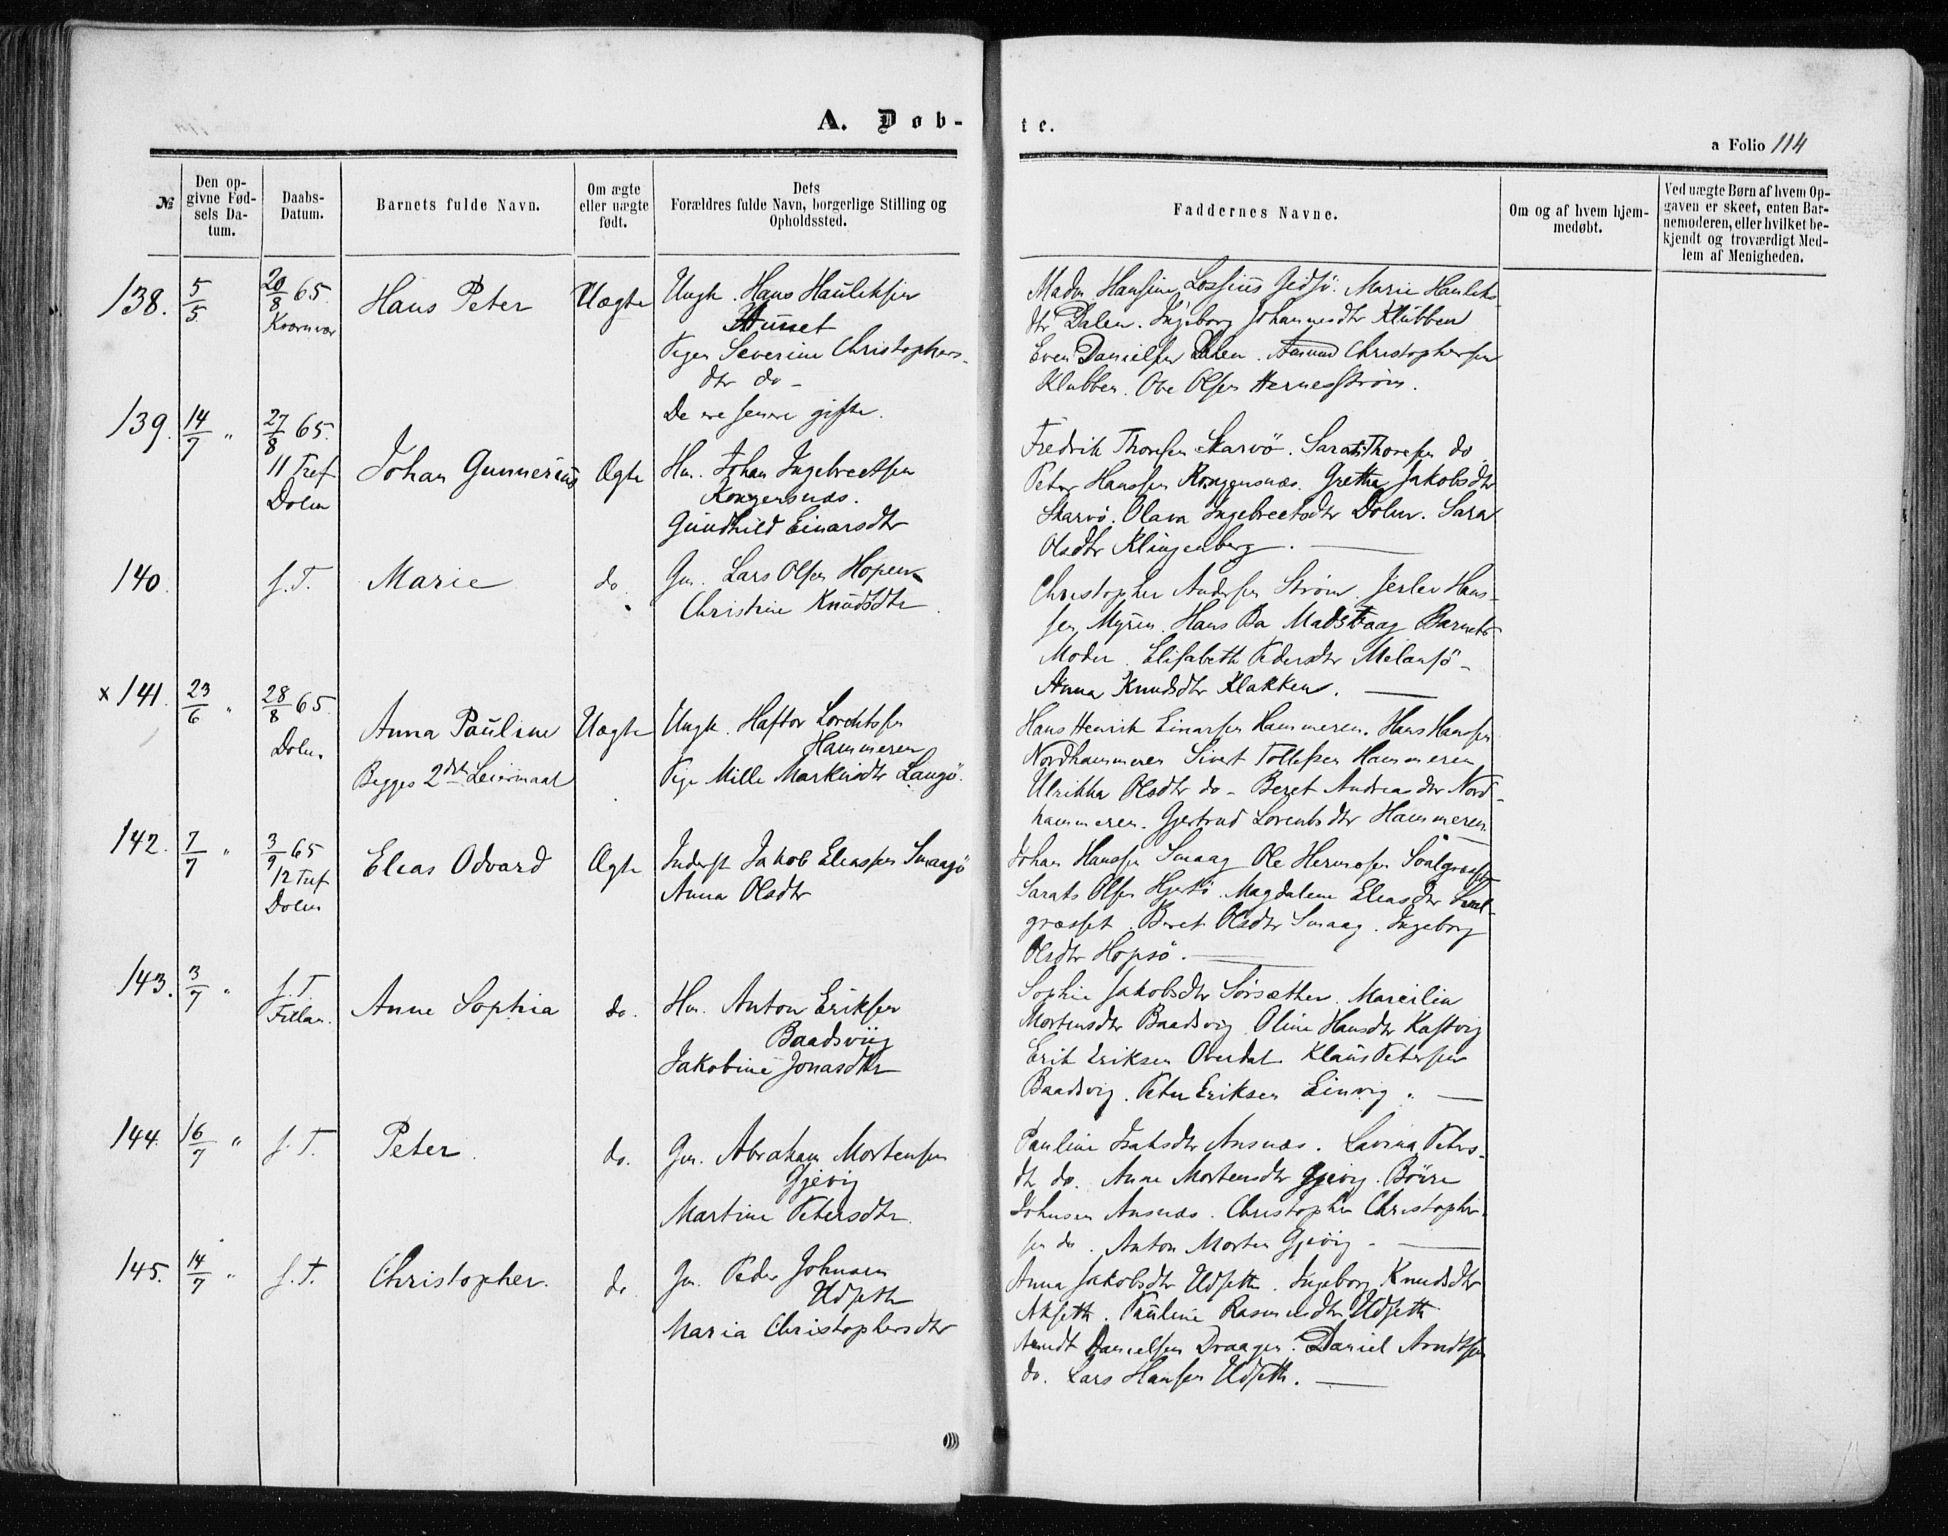 A. Døb-
te.
a Folio 114
№
Den op-
givne Fød-
sels Da-
tum.
Daabs-
Datum.
Barnets fulde Navn.
Om ægte
eller uægte
født.
Dets
Forældres fulde Navn, borgerlige Stilling og
Opholdssted.
Faddernes Navne.
Om og af hvem hjem-
medøbt.
Ved uægte Børn af hvem Op-
gaven er skeet, enten Bar-
nemoderen, eller hvilket be-
kjendt og troværdigt Med-
lem af Menigheden.
138. 5/5 20/8 65. Hans Peter Uægte Ungk. Hans Hauleksen
Kvernvær
Pige Severine Christophers-
dtr do -
De ere senere gifte.
Madm Hansine Lossius Gidsø. Marie Hauleks-
dtr Dalen. Ingeborg Johannesdtr Klubben
Even Danielsen Dalen. Amund Christophersen
Klubben. Ove Olsen Hernesstrøm.
139. 14/7 " 27/8 65. Johan Gunnerius Ægte Hm. Johan Ingebretsen
11 Tref
Dolm
Kongensnæs.
Gundhild Einarsdtr
Fredrik Thoresen Skarvø. Sara Thoresen do
Peter Hanssen Kongensnæs. Gretha Jakobsdtr
Skarvø. Olava Ingebretsdtr Dolm. Sara
Olsdtr Klingenberg.
140 s. T. Marie do. Gm. Lars Olsen Hopen
Christine Knudsdtr
Christopher Andersen Strøm. Hans-
sen Myren. Hans Mads Barnets
Moder. Elisabeth Pedersdtr Melansø -
Anna Knudsdtr Klakken.
x 141. 23/6 " 28/8 65. Anna Pauline Uægte Ungk. Haftor Lorentsen
Dolm.
Hammeren
Begges 2det Leiermaal Pige Mille Markusdtr Langø.
Hans Henrik Einarsen Hammeren. Hans Hansen
Nordhammeren Sivert Tollefsen Hammeren
Ulrikka Olsdtr do - Beret Andreasdtr Nord-
hammeren. Gjertrud Lorentsdtr Hammeren.
142. 7/7 " 3/9 65 Eleas Odvard Ægte Inderst Jakob Eleassen Smaagø
12 Tref
Dolm
Anna Olsdtr
Johan Hanssen Smaag Ole
Sarats Olsen Magdalene Eleasdtr
græsset. Beret Olsdtr Smaag. Ingeborg
Olsdtr Hopsø.
143. 3/7 " s. T. Anne Sophia do. Hm. Anton Eriksen
Fillan.
Baadsviig
Jakobine Jonasdtr
Sophie Jakobsdtr Sørsæther. Marcilia
Mortensdtr Baadsvig Oline Hansdtr Kastvig
Erik Eriksen Overdal Klaus Petersen
Baadsvig. Peter Eriksen Linvig.
144. 16/7 " s. T. Peter. do. Gm. Abraham Mortensen
Gjevig
Martine Petersdtr.
Pauline Isaksdtr Ansnæs. Lavina Peters-
dtr do. Anne Mortensdtr Gjevig. Børre
Johnsen Ansnæs. Christopher Christopher-
sen do. Anton Morten Gjevig -
145. 14/7 " s. T. Christopher. do. Gm. Peder Johnsen
Udseth
Maria Christophersdtr
Anna Jakobsdtr Udseth. Ingeborg Knudsdtr
Akseth. Pauline Rasmusdtr Udseth
Arndt Danielsen Draagen. Daniel Arndtsen
do. Lars Hansen Udseth.